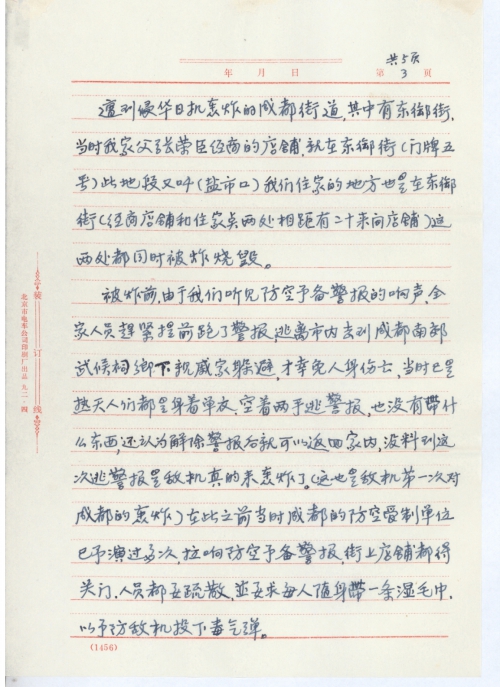 共5页
年 月 日 第 3 页
遭到侵华日机轰炸的成都街道,其中有东御街,
当时我家父张荣臣经商的店铺,就在东御街(门牌五
号)此地段又叫(盐市口)我们住家的地方也是在东御
街(经商店铺和住家点两处相距有二十来间店铺)这
两处都同时被炸烧毁。
被炸前,由于我们听见防空予备警报的响声,全
家人员赶紧提前跑了警报,逃离市内去到成都南郊
武候祠鄉下親戚家躲避,才幸免人身伤亡,当时已是
热天人们都是身着单衣,空着两手逃警报,也没有带什
么东西,还认为解除警报后就可以返回家内,没料到这
次逃警报是敌机真的来轰炸了。(这也是敌机第一次对
成都的轰炸)在此之前当时成都的防空管制单位
已予演过多次,拉响防空予备警报,街上店铺都得
关门,人员都要疏散,並要求每人随身带一条湿毛巾,
以予防敌机投下毒气弹。
(1456)
装订线
北京市电车公司印刷厂出品 九二·四